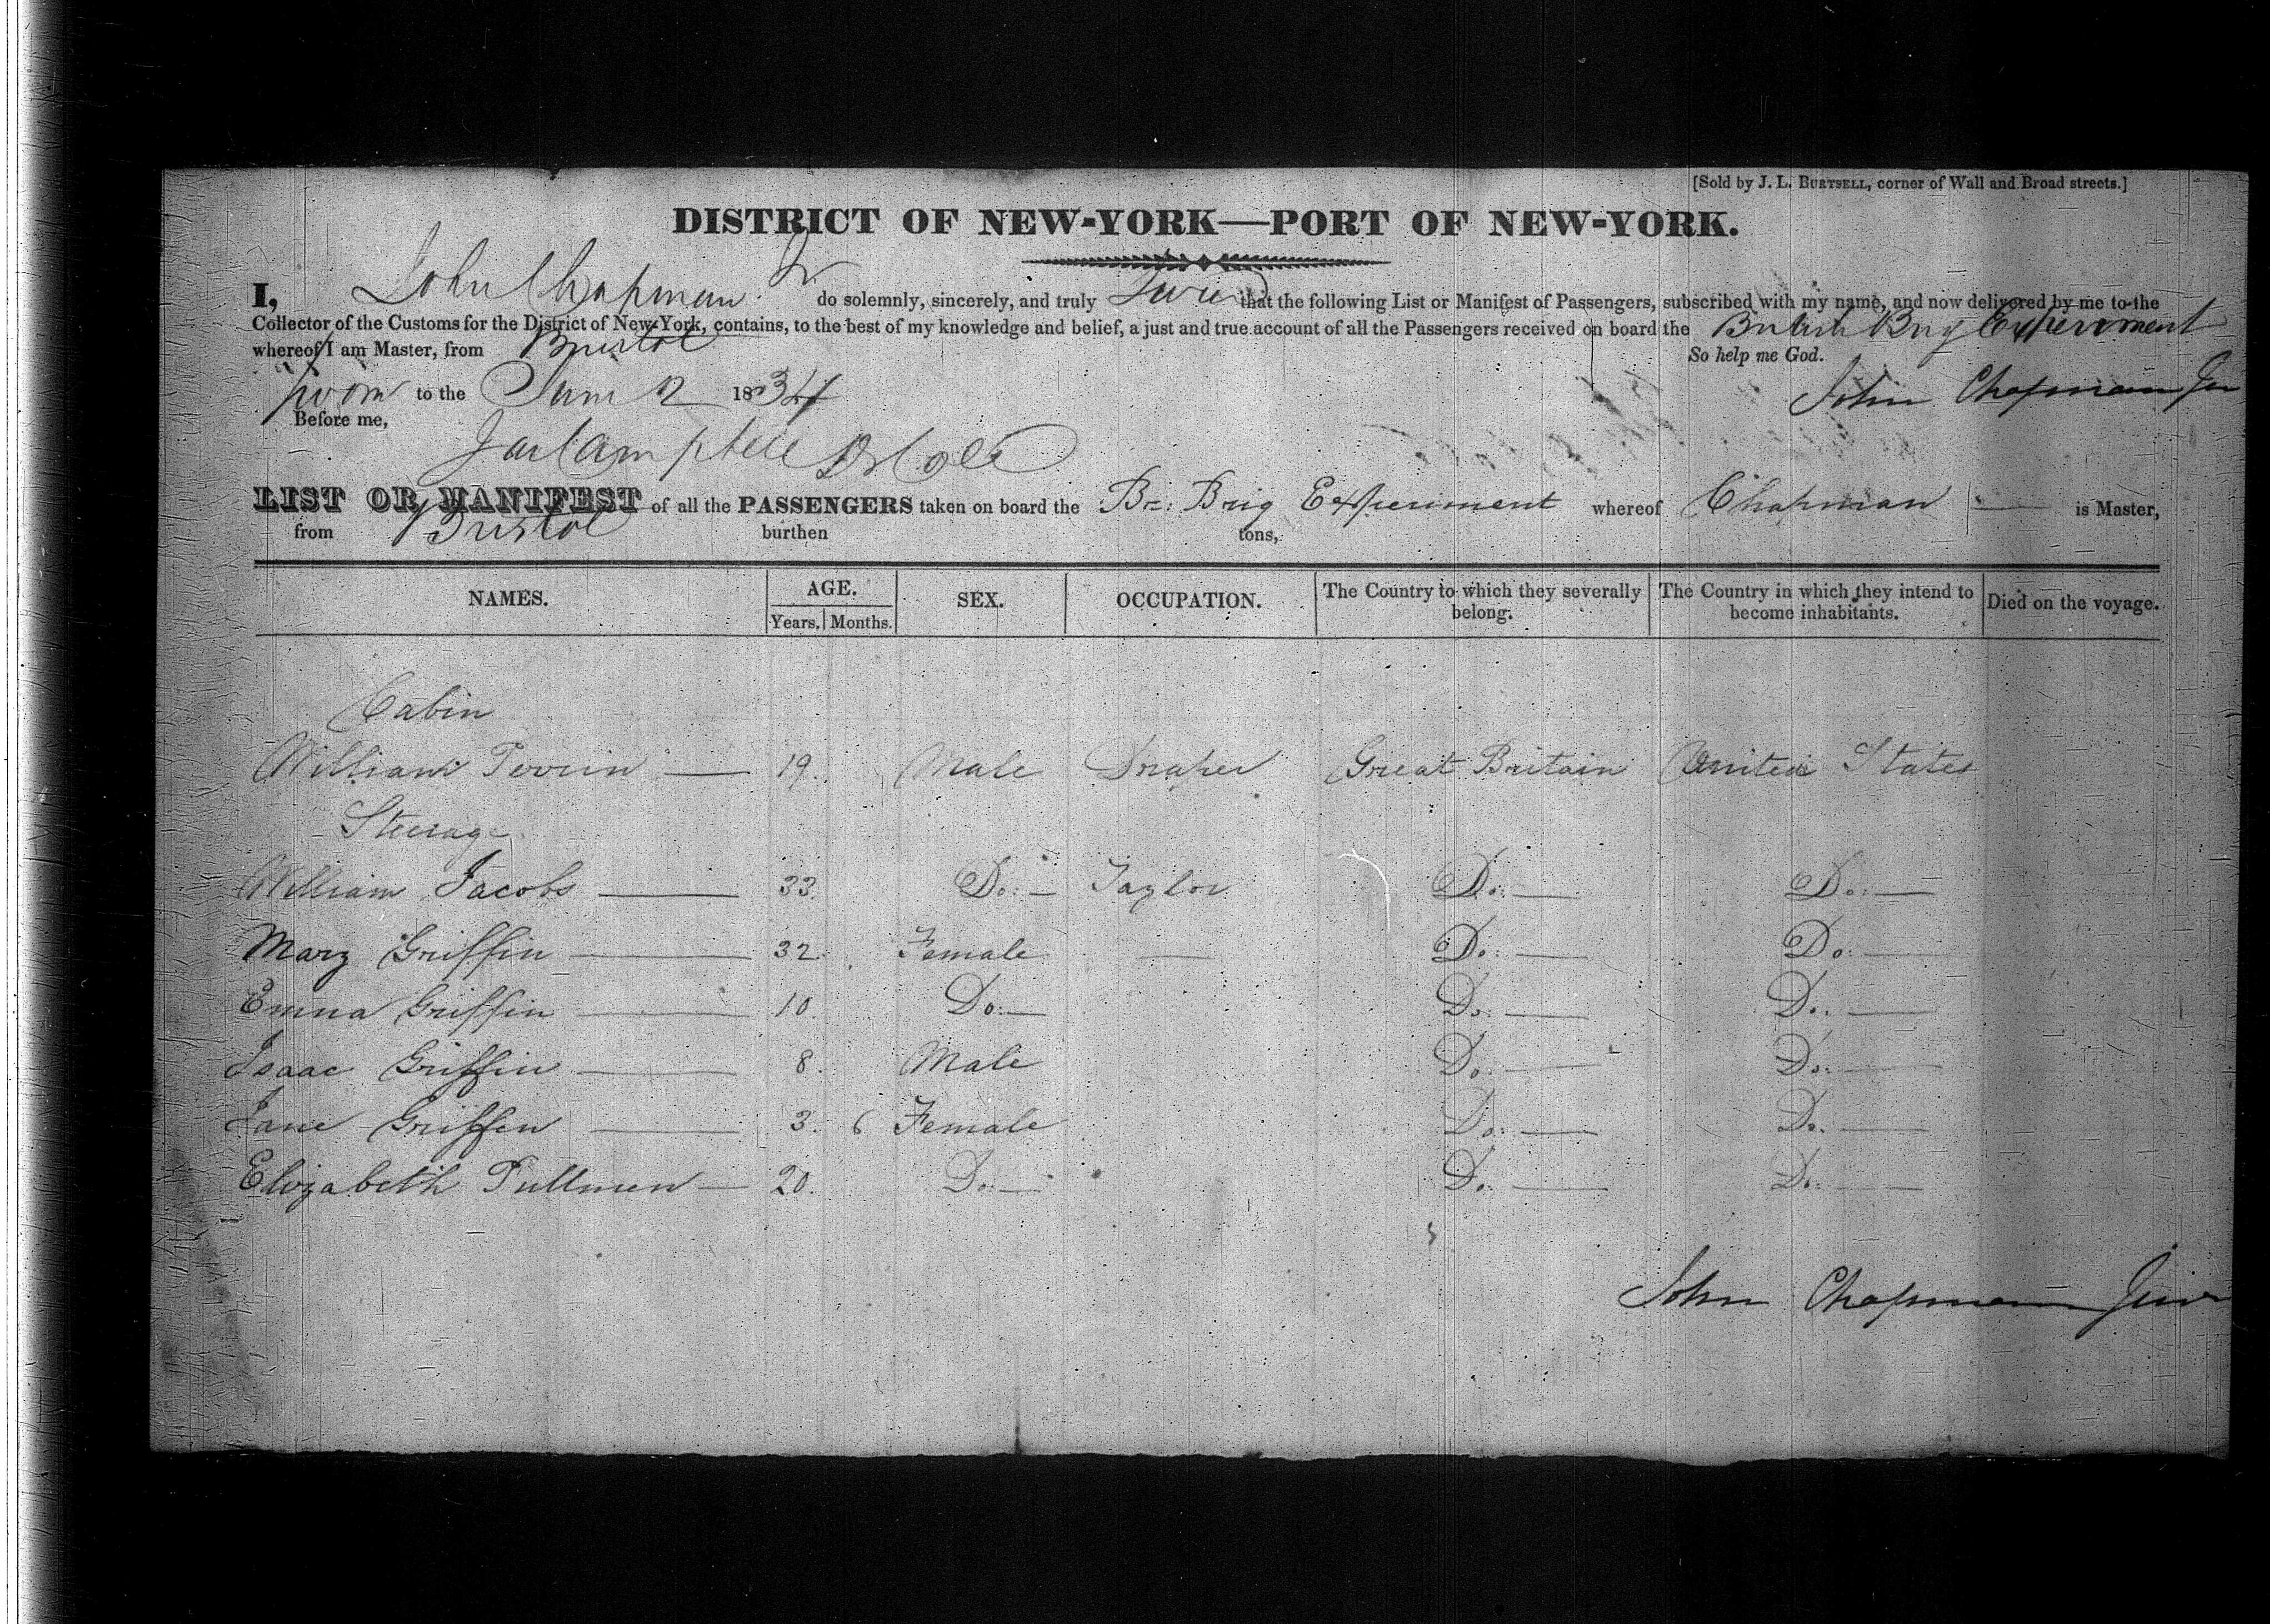 [Sold by J. L. BURTSELL, corner of Wall and Broad streets.]
DISTRICT OF NEW-YORK—PORT OF NEW-YORK.
I, John Chapman Jr do solemnly, sincerely, and truly that the following List or Manifest of Passengers, subscribed with my name, and now delivered by me to the
Collector of the Customs for the District of New-York, contains, to the best of my knowledge and belief, a just and true account of all the Passengers received on board the British Brig Experiment
whereof I am Master, from Bristol So help me God.
to the June 2 1834 John Chapman Jun
Before me,
LIST OR MANIFEST of all the PASSENGERS taken on board the Br: Brig Experiment whereof Chapman is Master,
from Bristol burthen tons,
NAMES. AGE. SEX. OCCUPATION. The Country to which they severally belong. The Country in which they intend to become inhabitants. Died on the voyage.
Years. Months.
Cabin
William Perrin — 19. Male Draper Great Britain United States
Steerage
William Jacobs — 33. Do: — Taylor Do: — Do: —
Mary Griffin — 32. Female — Do: — Do: —
Emma Griffin — 10. Do: — Do: — Do: —
Isaac Griffin — 8. Male Do: — Do: —
Jane Griffen — 3. 6 Female Do: — Do: —
Elizabeth Pullmen — 20. Do: — Do: — Do: —
John Chapman Junr